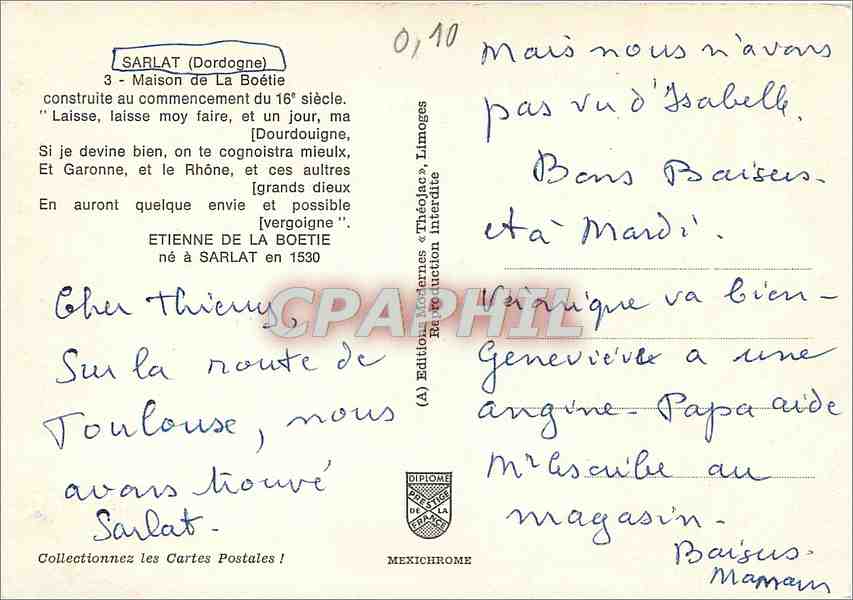 SARLAT (Dordogne)
3 - Maison de La Boétie
construite au commencement du 16e siècle.
" Laisse, laisse moy faire, et un jour, ma
[Dourdouigne,
Si je devine bien, on te cognoistra mieulx,
Et Garonne, et le Rhône, et ces aultres
[grands dieux
En auront quelque envie et possible
[vergoigne ".
ETIENNE DE LA BOETIE
né à SARLAT en 1530
Cher Thierry,
Sur la route de
Toulouse, nous
avons trouvé
Sarlat -
Collectionnez les Cartes Postales !
0,10
(A) Editions Modernes «Théojac», Limoges
Reproduction Interdite
DIPLOME
PRESTIGE
DE LA
FRANCE
MEXICHROME
Mais nous n'avons
pas vu d'Isabelle.
Bons Baisers.
et à Mardi.
Véronique va bien -
Geneviève a une
angine - Papa aide
Mr Escribe au
magasin -
Baisers.
Maman
CPAPHIL